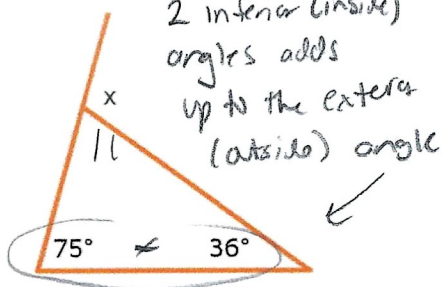 2 interior (inside)
angles adds
up to the exterer
(outside) angle
x
11
75° ≠ 36°